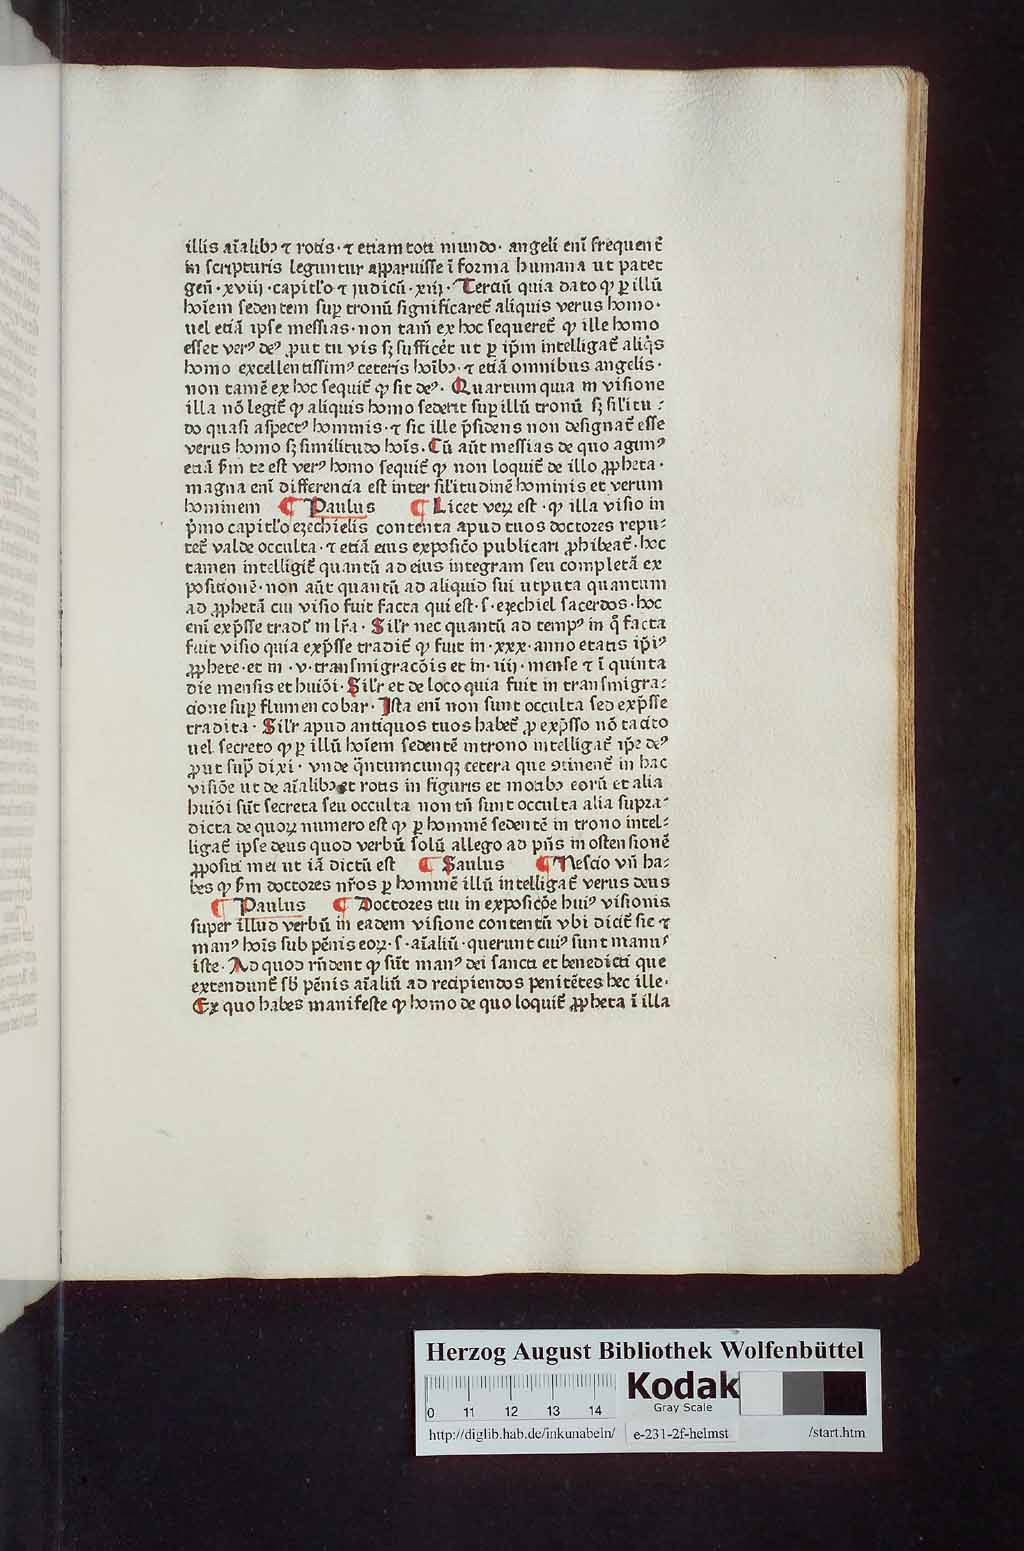 illis aīalibꝫ ⁊ rotis · ⁊ etiam toti mundo · angeli enī frequent̄
in scripturis leguntur apparuisse ī forma humana ut patet
gen̄ · xviij · capitl̓o ⁊ judicū · xiij · Terciū quia dato ꝙ ꝑ illū
hoīem sedentem suꝑ tronū significaret̄ aliquis verus homo ·
uel etiā ipse messias · non tam̄ ex hoc sequeret̄ ꝙ ille homo
esset verꝰ deꝰ ꝓut tu vis sꝫ sufficēt ut ꝑ ip̄m intelligat̄ aliq̇s
homo excellentissimꝰ ceteris hoībꝫ · ⁊ etiā omnibus angelis ·
non tamē ex hoc sequit̄ ꝙ sit deꝰ · Quartum quia in visione
illa nō legit̄ ꝙ aliquis homo sederit suꝑ illū tronū sꝫ sil̓itu ⸗
do quasi aspectꝰ hominis · ⁊ sic ille p̄sidens non designat̄ esse
verus homo sꝫ similitudo hoīs · Cū aūt messias de quo agimꝰ
etiā s̄m te est verꝰ homo sequit̄ ꝙ non loquit̄ de illo ꝓpheta ·
magna enī differencia est inter sil̓itudinē hominis et verum
hominem ¶ Paulus ¶ Licet veꝝ est · ꝙ illa visio in
p̄mo capitl̓o ezechielis contenta apud tuos doctores repu⸗
tet̄ valde occulta · ⁊ etiā eius exposic̄o publicari ꝓhibeat̄ · hoc
tamen intelligit̄ quantū ad eius integram seu completā ex
positionē · non aūt quantū ad aliquid sui utputa quantum
ad ꝓphetā cui visio fuit facta qui est · s · ezechiel sacerdos · hoc
enī exp̄sse tradit̄ in lr̄a · Sil̓r nec quantū ad tempꝰ in q̊ facta
fuit visio quia exp̄sse tradit̄ ꝙ fuit in · xxx · anno etatis ip̄iꝰ
ꝓphete · et in · v · transmigracōis et in · iiij · mense ⁊ ī quinta
die mensis et huiōi · Sil̓r et de loco quia fuit in transmigra⸗
cione suꝑ flumen cobar · Ista enī non sunt occulta sed exp̄sse
tradita · Sil̓r apud antiquos tuos habet̄ ꝓ exp̄sso nō tacito
uel secreto ꝙ ꝑ illū hoīem sedentē in trono intelligat̄ ip̄e deꝰ
ꝓut sup̄ dixi · vnde q̄ntumcunqꝫ cetera que ꝯtinent̄ in hac
visiōe ut de aīalibꝫ et rotis in figuris et motibꝫ eorū et alia
huiōi sūt secreta seu occulta non tn̄ sunt occulta alia supra⸗
dicta de quoꝝ numero est ꝙ ꝑ hominē sedentē in trono intel⸗
ligat̄ ipse deus quod verbū solū allego ad pn̄s in ostensionē
ꝓpositi mei ut iā dictū est ¶ Saulus ¶ Nescio vn̄ ha⸗
bes ꝙ s̄m doctores nr̄os ꝑ hominē illū intelligat̄ verus deus
¶ Paulus ¶ Doctores tui in exposicōe huiꝰ visionis
super illud verbū in eadem visione contentū vbi dicit̄ sic ⁊
manꝰ hoīs sub pēnis eoꝝ · s · aīaliū · querunt cuiꝰ sunt manus
iste · Ad quod rn̄dent ꝙ sūt manꝰ dei sancti et benedicti que
extendunt̄ sb̄ pēnis aīaliū ad recipiendos penitētes hec ille ·
Ex quo habes manifeste ꝙ homo de quo loquit̄ ꝓpheta ī illa
Herzog August Bibliothek Wolfenbüttel
0 11 12 13 14
Kodak
Gray Scale
http://diglib.hab.de/inkunabeln/ e-231-2f-helmst /start.htm